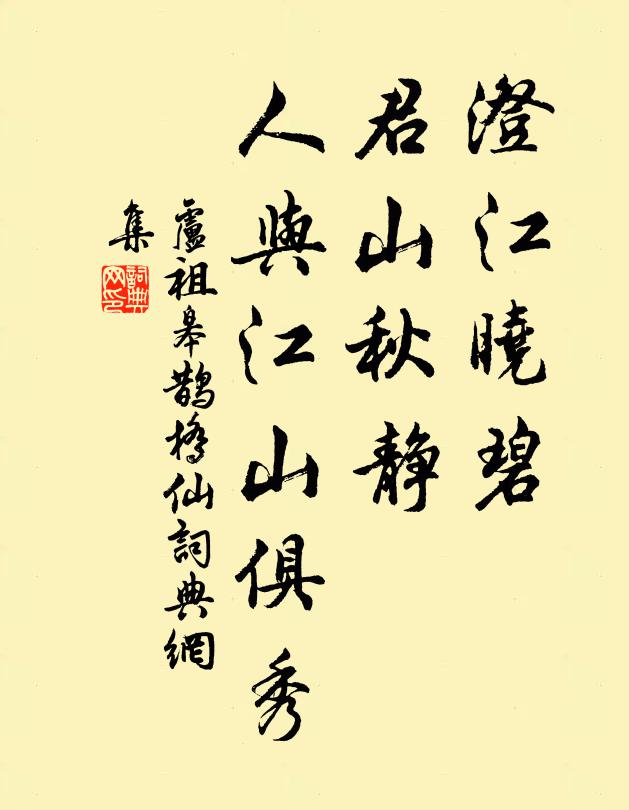 澄江曉碧
君山秋靜
人與江山俱秀
盧祖皋鵲橋仙詞典網
集
詞典網印